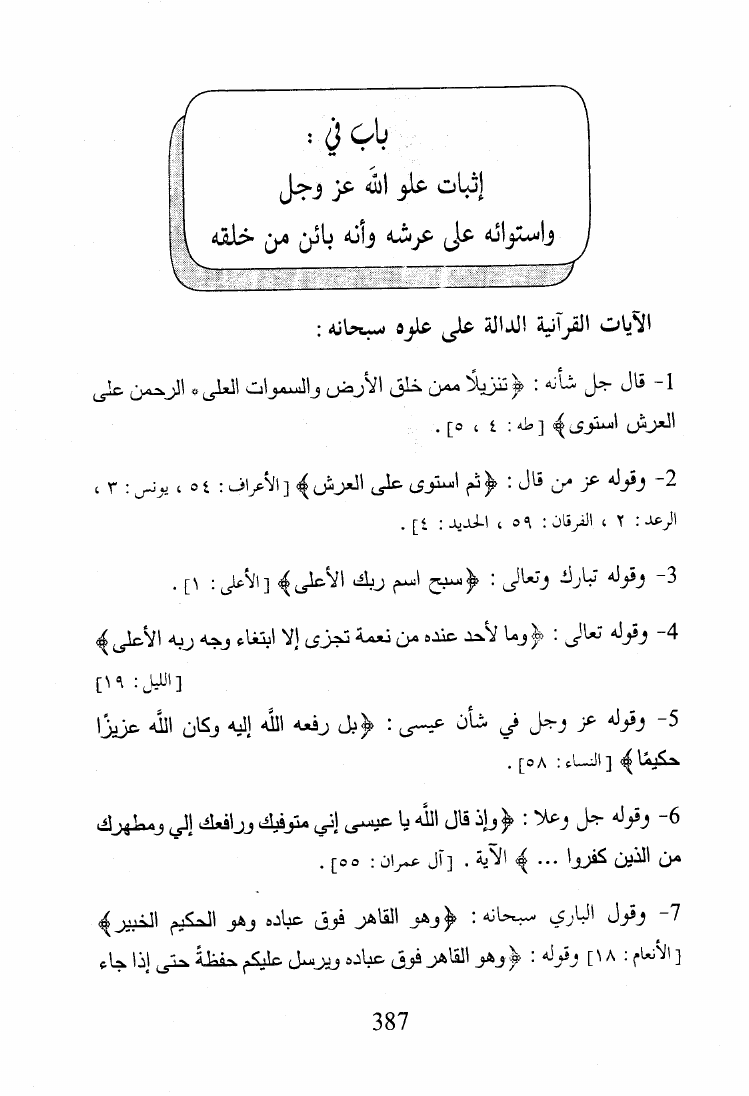 باب في :
إثبات علو الله عز وجل
واستوائه على عرشه وأنه بائن من خلقه
الآيات القرآنية الدالة على علوه سبحانه :
1- قال جل شأنه : ﴿تنزيلًا ممن خلق الأرض والسموات العلى * الرحمن على
العرش استوى﴾ [طه : ٤ ، ٥] .
2- وقوله عز من قال : ﴿ثم استوى على العرش﴾ [الأعراف: ٥٤ ، يونس: ٣ ،
الرعد: ٢ ، الفرقان: ٥٩ ، الحديد: ٤] .
3- وقوله تبارك وتعالى : ﴿سبح اسم ربك الأعلى﴾ [الأعلى: ١] .
4- وقوله تعالى : ﴿وما لأحد عنده من نعمة تجزى إلا ابتغاء وجه ربه الأعلى﴾
[الليل: ١٩]
5- وقوله عز وجل في شأن عيسى : ﴿بل رفعه اللَّه إليه وكان اللَّه عزيزًا
حكيمًا﴾ [النساء: ٥٨] .
6- وقوله جل وعلا : ﴿وإذ قال اللَّه يا عيسى إني متوفيك ورافعك إلي ومطهرك
من الذين كفروا ... ﴾ الآية . [آل عمران: ٥٥] .
7- وقول الباري سبحانه : ﴿وهو القاهر فوق عباده وهو الحكيم الخبير﴾
[الأنعام: ١٨] وقوله : ﴿وهو القاهر فوق عباده ويرسل عليكم حفظةً حتى إذا جاء
387